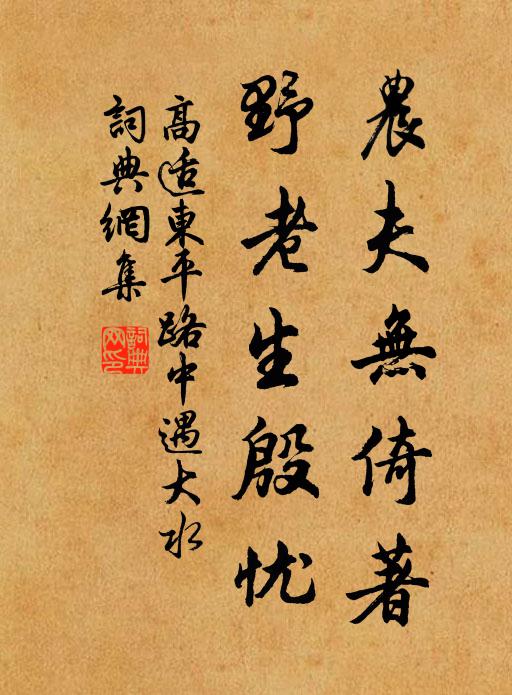 農夫無倚著
野老生殷忧
高适東平路中遇大水
詞典網集
詞典
网印